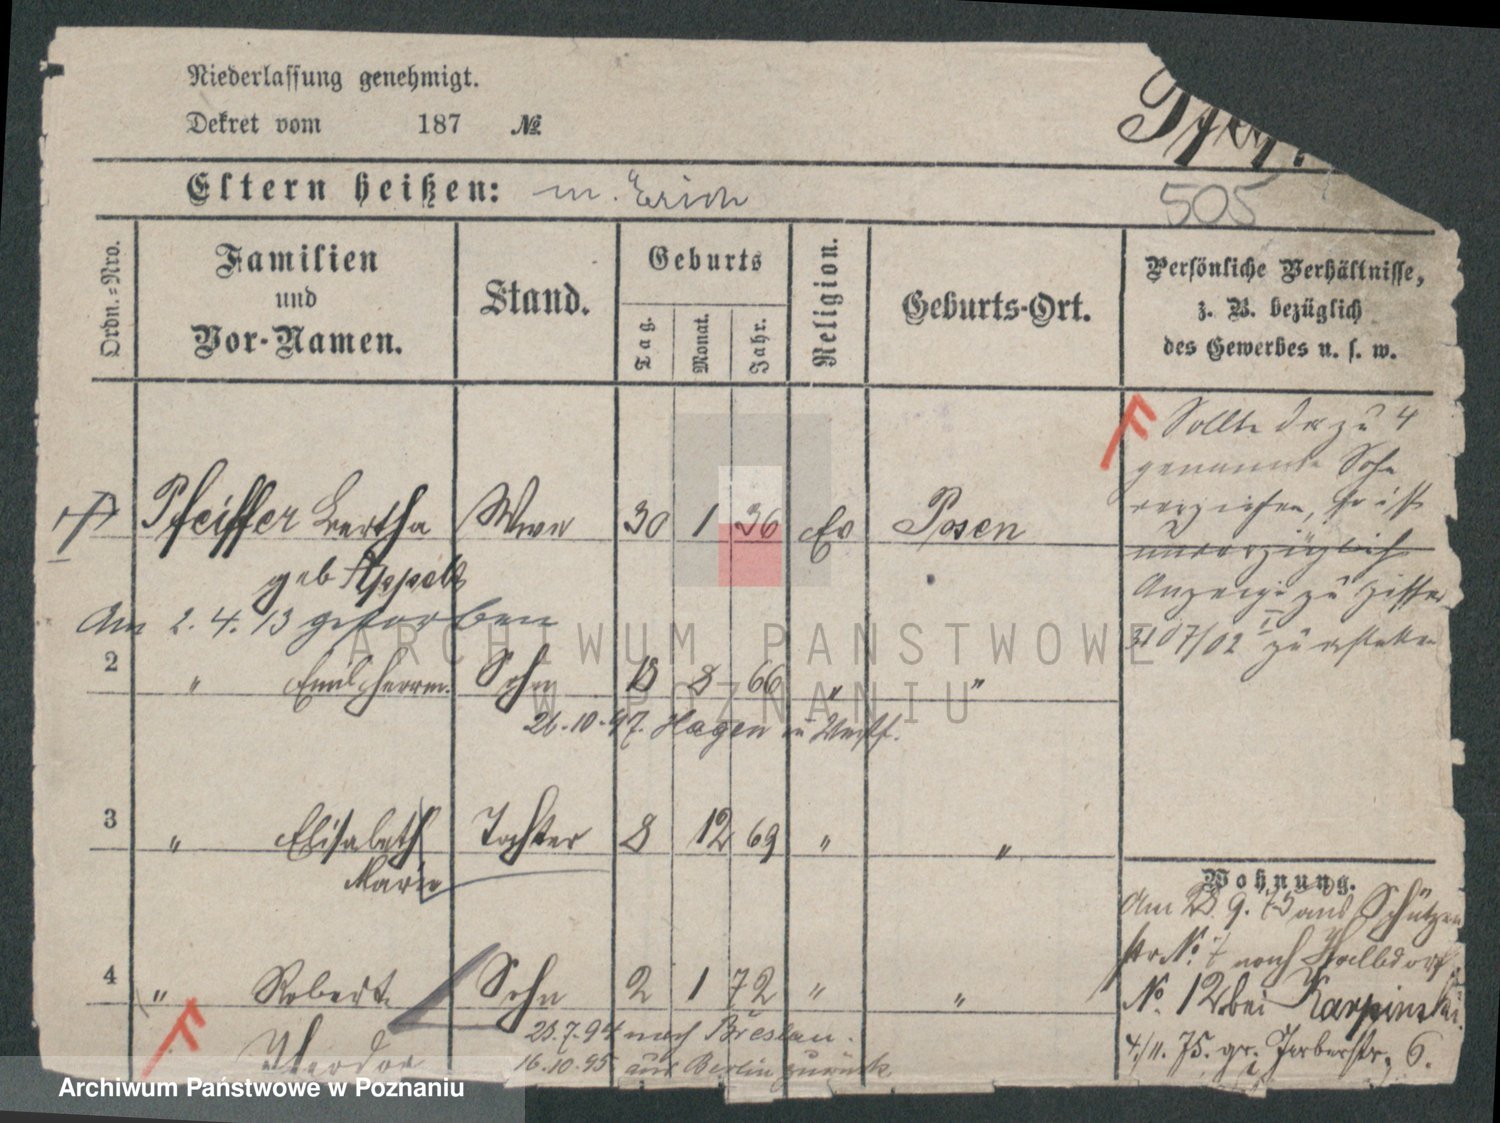 Niederlassung genehmigt.
Dekret vom 187 №
Eltern heißen: m. Erich
505
Ordn.-Nro.
Familien
und
Vor-Namen.
Stand.
Geburts
Tag.
Monat.
Jahr.
Religion.
Geburts-Ort.
Persönliche Verhältnisse,
z. B. bezüglich
des Gewerbes u. s. w.
Sollte der zu 4
genannte Sohn
verziehen, so ist
unverzüglich
Anzeige zu Ziffer
3107/02 I zu erstatten
Pfeiffer Bertha Wwe 30 1 36 Ev Posen
geb Appelt
Am 2. 4. 13 gestorben
2 " Emil Herrm. Sohn 18 8 66 " "
26.10.97. Hagen in Westf.
3 " Elisabeth Tochter 8 12 69 " "
Marie
4 " Robert Sohn 2 1 72 " "
Theodor
28.7.94 nach Breslau.
16.10.95 aus Berlin zurück
Wohnung.
Am 28. 9. 75 aus Schützen
str No. 7 nach
No. 12 bei Karpinski.
4/11. 75. gr. Gerberstr. 6.
ARCHIWUM PAŃSTWOWE
W POZNANIU
Archiwum Państwowe w Poznaniu